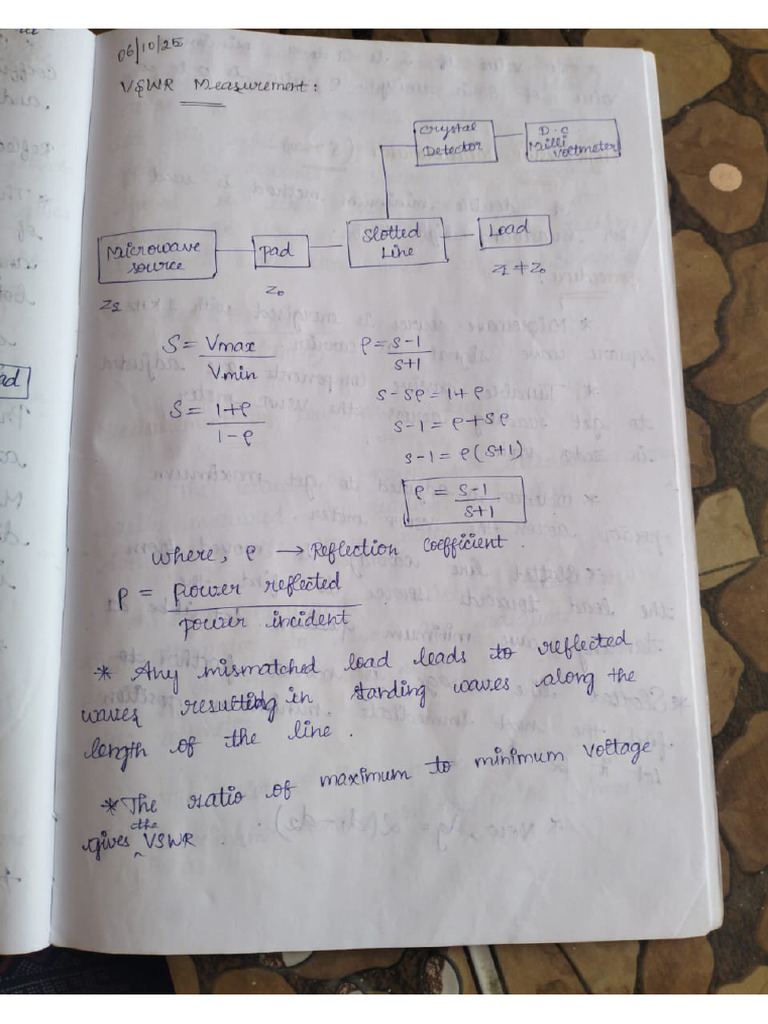 06/10/25
VSWR Measurement:
Crystal
Detector
D.C
Milli
Voltmeter
Microwave
source
Pad
Slotted
Line
Load
Zs
Z₀
Z₁ ≠ Z₀
S = Vmax / Vmin
S = 1+ρ / 1-ρ
ρ = S-1 / S+1
S-Sρ = 1+ρ
S-1 = ρ+Sρ
S-1 = ρ(S+1)
ρ = S-1 / S+1
where, ρ → Reflection coefficient.
ρ = power reflected / power incident
* Any mismatched load leads to reflected
waves resulting in standing waves along the
length of the line.
* The ratio of maximum to minimum voltage
gives the VSWR.